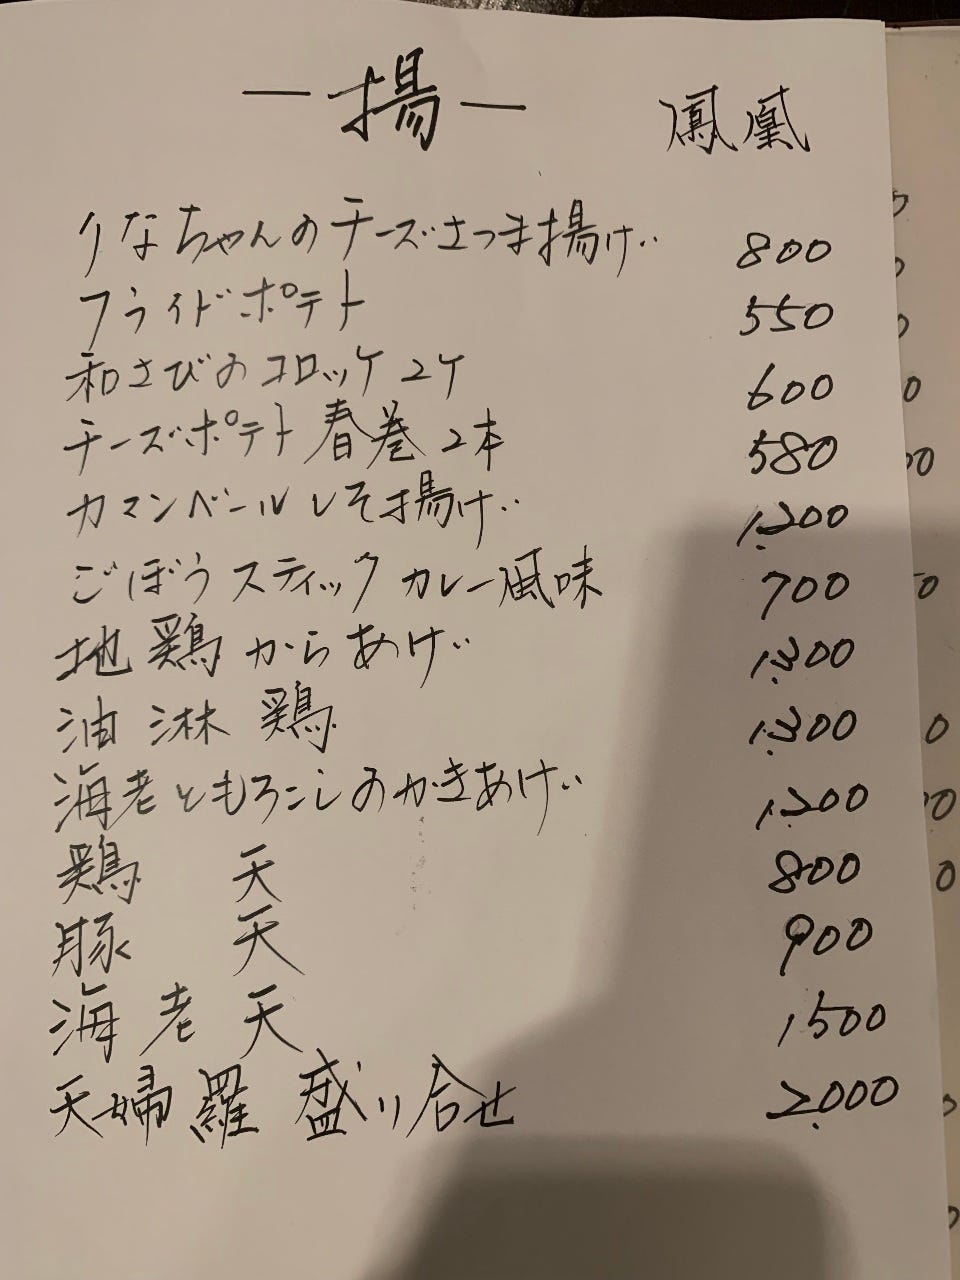 －揚－ 鳳凰
りなちゃんのチーズさつま揚げ 800
フライドポテト 550
和さびのコロッケ 2ケ 600
チーズポテト春巻 2本 580
カマンベールしそ揚げ 1,200
ごぼうスティック カレー風味 700
地鶏からあげ 1,300
油淋鶏 1,300
海老ともろこしのかきあげ 1,200
鶏 天 800
豚 天 900
海老天 1500
天婦羅 盛り合せ 2,000